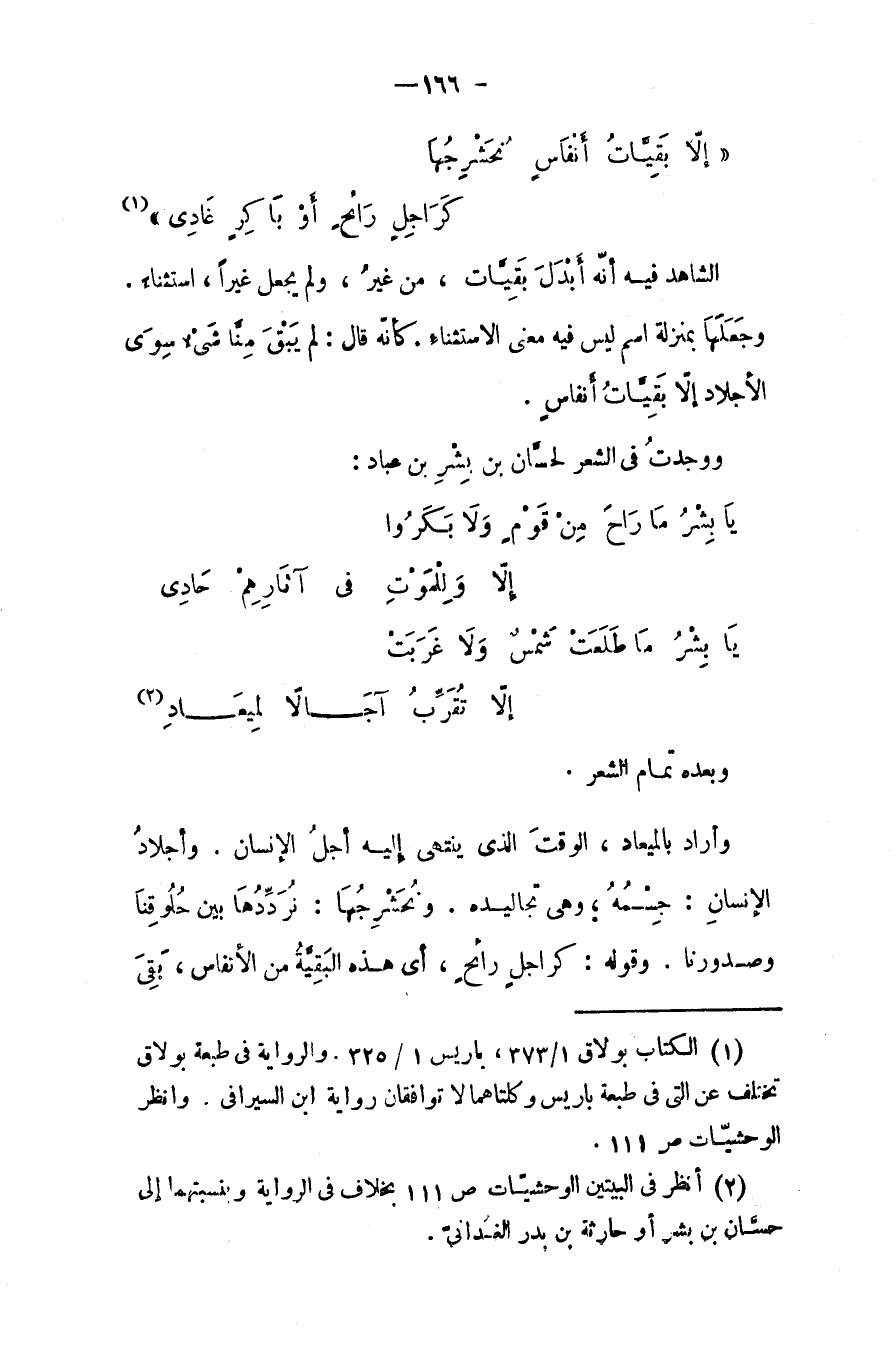 - ١٦٦ —
« إلّا بَقِيَّاتُ أَنْفَاسٍ نُحَشْرِجُهَا
كَرَاجِلٍ رَائحٍ أَوْ بَاكِرٍ غَادِى »(١)
الشاهد فيه أنّه أَبْدَلَ بَقِيَّات ، من غيرُ ، ولم يجعل غيراً ، استثناء .
وجَعَلَهَا بمنزلة اسم ليس فيه معنى الاستثناء . كأنّه قال : لم يَبْقَ مِنَّا شَىْءٌ سِوَى
الأجلاد إلّا بَقِيَّاتُ أنفاسٍ .
ووجدتُ فى الشعر لحسَّان بن بِشْرِ بن عباد :
يَا بِشْرُ مَا رَاحَ مِنْ قَوْمٍ وَلَا بَكَرُوا
إِلَّا وَلِلْمَوْتِ فى آثَارِهِمْ حَادِى
يَا بِشْرُ مَا طَلَعَتْ شَمْسٌ وَلَا غَرَبَتْ
إلّا تُقَرِّبُ آجَالًا لِمِيعَادِ(٢)
وبعده تمام الشعر .
وأراد بالميعاد ، الوقتَ الذى ينتهى إليه أجلُ الإنسان . وأجلادُ
الإنسانِ : جِسْمُهُ ؛ وهى تجاليده . ونُحَشْرِجُهَا : نُرَدِّدُهَا بين حُلُوقِنَا
وصدورنا . وقوله : كراجلٍ رائحٍ ، أى هذه البَقِيَّةُ من الأنفاس ، بَقِىَ
(١) الكتاب بولاق ٣٧٣/١ ، باريس ١ / ٣٢٥ . والرواية فى طبعة بولاق
تختلف عن التى فى طبعة باريس وكلتاهما لا توافقان رواية ابن السيرافى . وانظر
الوحشيّات ص ١١١ .
(٢) أنظر فى البيتين الوحشيّات ص ١١١ بخلاف فى الرواية وبنسبتهما إلى
حسَّان بن بشر أو حارثة بن بدر الغُدانىّ .